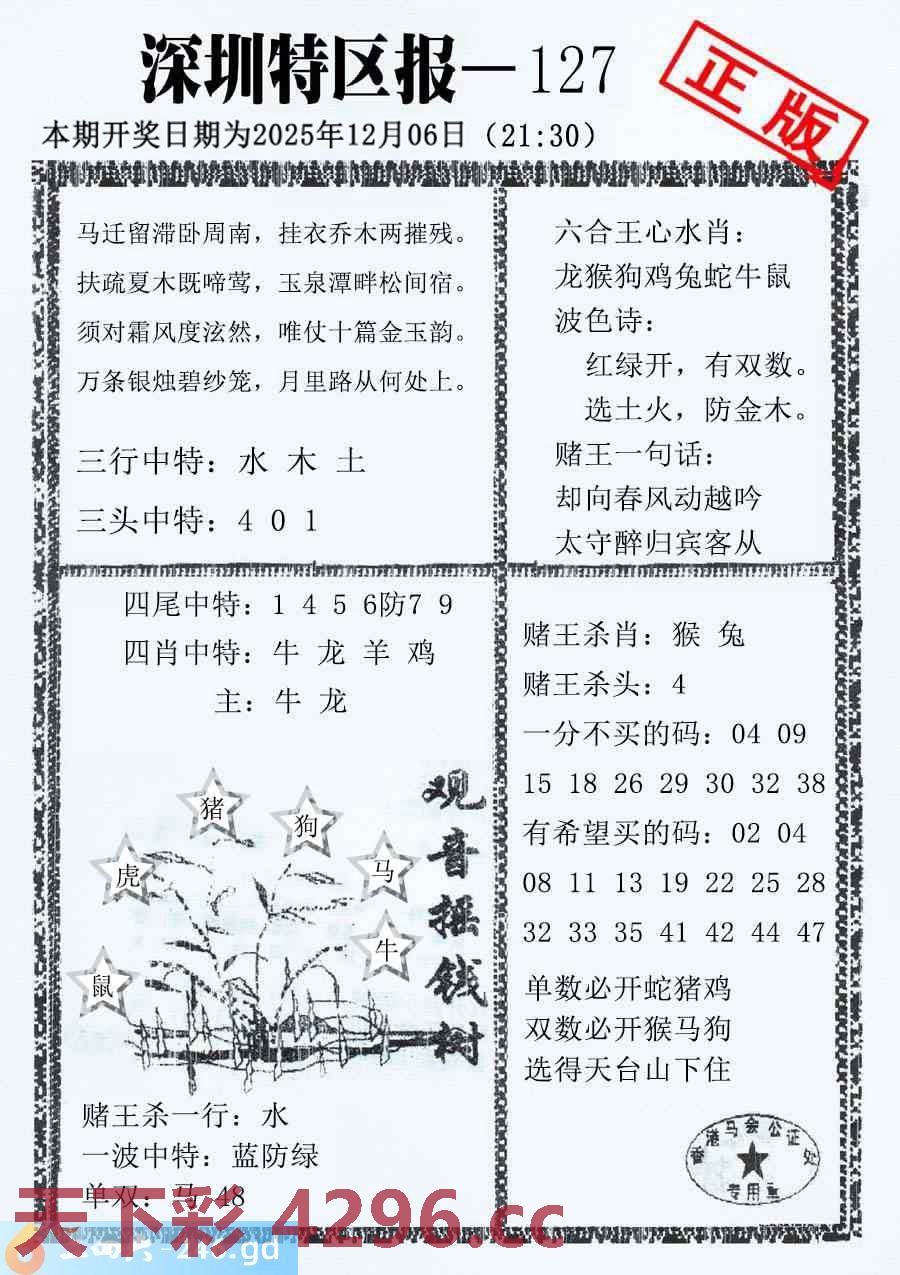 深圳特区报—127
正版
本期开奖日期为2025年12月06日（21:30）
马迁留滞卧周南，挂衣乔木两摧残。
扶疏夏木既啼莺，玉泉潭畔松间宿。
须对霜风度泫然，唯仗十篇金玉韵。
万条银烛碧纱笼，月里路从何处上。
三行中特：水 木 土
三头中特：4 0 1
六合王心水肖：
龙猴狗鸡兔蛇牛鼠
波色诗：
红绿开，有双数。
选土火，防金木。
赌王一句话：
却向春风动越吟
太守醉归宾客从
四尾中特：1 4 5 6防7 9
四肖中特：牛 龙 羊 鸡
主：牛 龙
猪
狗
虎
马
牛
鼠
观音摇钱树
赌王杀一行：水
一波中特：蓝防绿
单双：马 48
赌王杀肖：猴 兔
赌王杀头：4
一分不买的码：04 09
15 18 26 29 30 32 38
有希望买的码：02 04
08 11 13 19 22 25 28
32 33 35 41 42 44 47
单数必开蛇猪鸡
双数必开猴马狗
选得天台山下住
香港马会公证处
专用章
天下彩 4296.cc
246.gd